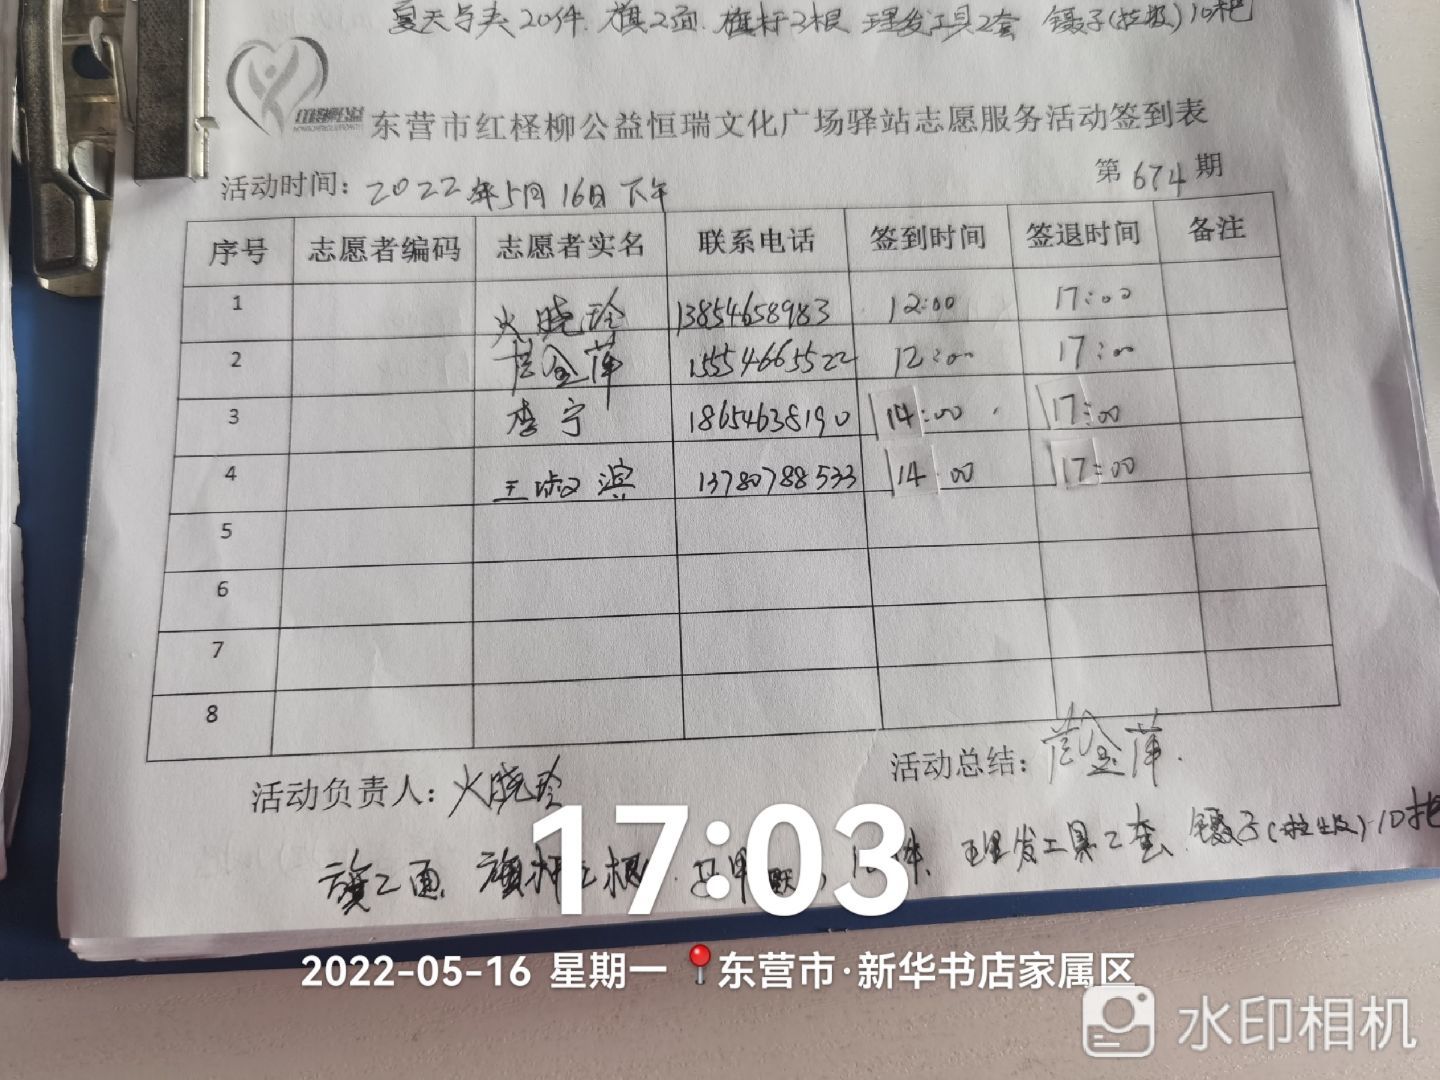 夏天马夹20件. 旗2面. 旗杆2根 理发工具2套 镊子(垃圾)10把
东营市红柽柳公益恒瑞文化广场驿站志愿服务活动签到表
活动时间: 2022年5月16日下午 第674期
序号 志愿者编码 志愿者实名 联系电话 签到时间 签退时间 备注
1 火晓玲 13854658983 12:00 17:00
2 金萍 15554665522 12:00 17:00
3 李宁 18654638190 14:00 17:00
4 王淑滨 13780788533 14:00 17:00
5
6
7
8
活动负责人: 火晓玲 活动总结: 金萍.
旗2面. 旗杆2根. 马甲 件. 理发工具2套. 镊子(垃圾)10把
17:03
2022-05-16 星期一 东营市·新华书店家属区
水印相机